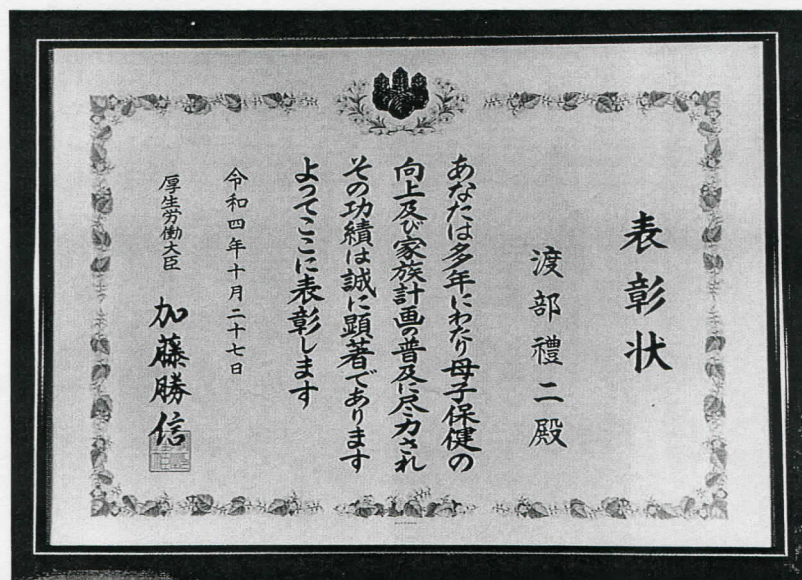 表彰状
渡部禮二殿
あなたは多年にわたり母子保健の
向上及び家族計画の普及に尽力され
その功績は誠に顕著であります
よってここに表彰します
令和四年十月二十七日
厚生労働大臣
加藤勝信